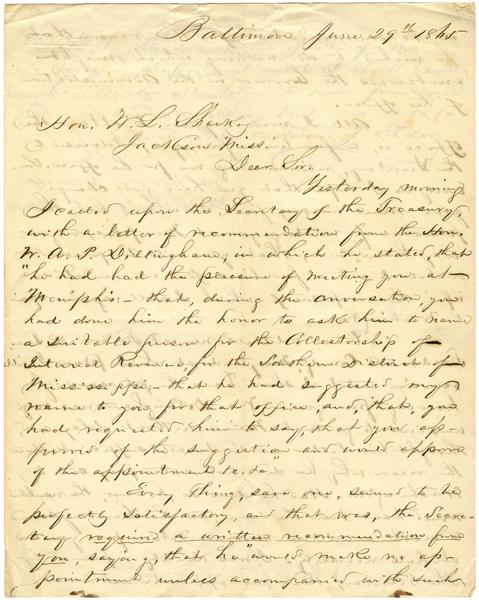 Baltimore June 29th 1865
Hon. W. L. Sharkey
Jackson Miss.
Dear Sir:
Yesterday morning
I called upon the Secretary of the Treasury,
with a letter of recommendation from the Hon.
W. A. P. Dillingham, in which he stated, that
"he had had the pleasure of meeting you at
Memphis: that, during the conversation, you
had done him the honor to ask him to name
a suitable person for the Collectorship of
Internal Revenue, for the Southern District of
Mississippi:- that he had suggested my
name to you for that office, and, that, you
had requested him to say, that you ap-
proved of the suggestion and would approve
of the appointment &c. &c"
Every thing, save one, seemed to be
perfectly satisfactory, and that was, the Secre-
tary required a written recommendation from
you, saying, that he "would make no ap-
pointment, unless accompanied with such